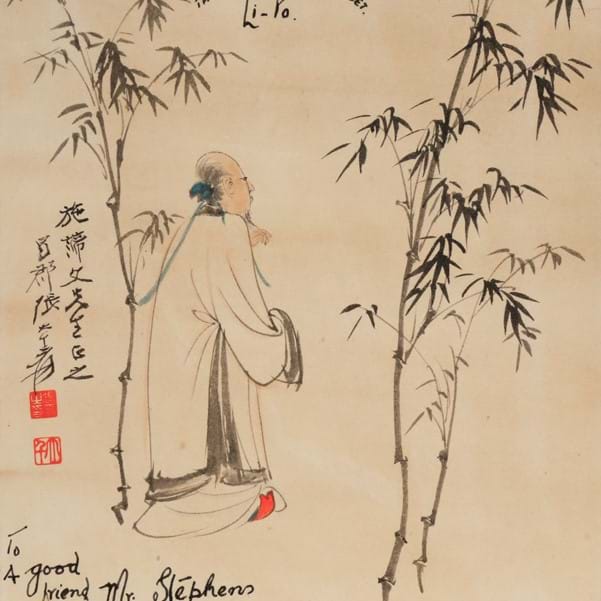 Li-Po.
施諦文先生正之
蜀郡張大千爰
To
A good
friend Mr. Stephens